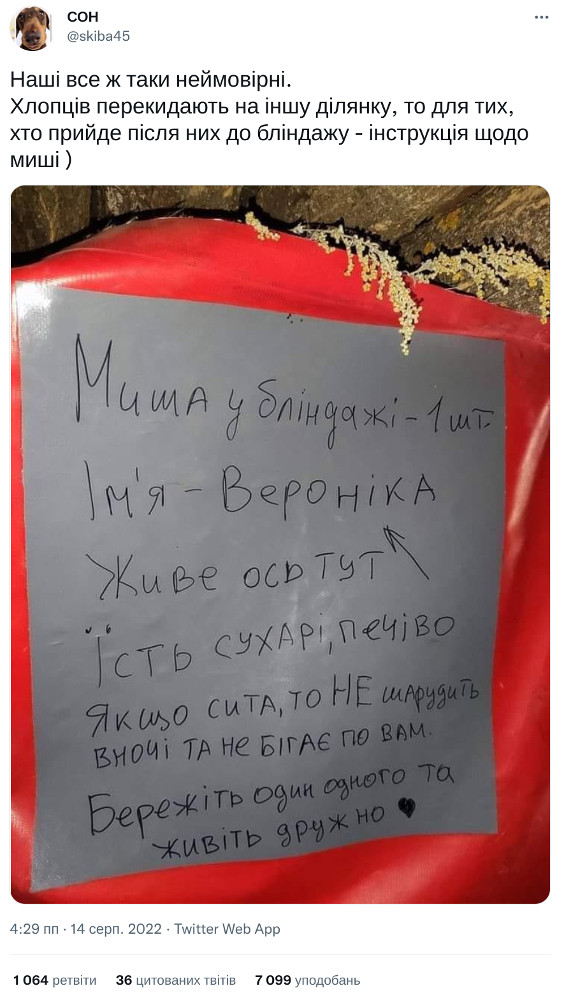 СОН
@skiba45
Наші все ж таки неймовірні.
Хлопців перекидають на іншу ділянку, то для тих,
хто прийде після них до бліндажу - інструкція щодо
миші )
Миша у бліндажі - 1 шт.
Ім'я - Вероніка
Живе ось тут ↖
Їсть сухарі, печіво
Якщо сита, то НЕ шарудить
вночі та не бігає по вам.
Бережіть один одного та
живіть дружно ♥
4:29 пп · 14 серп. 2022 · Twitter Web App
1 064 ретвіти 36 цитованих твітів 7 099 уподобань